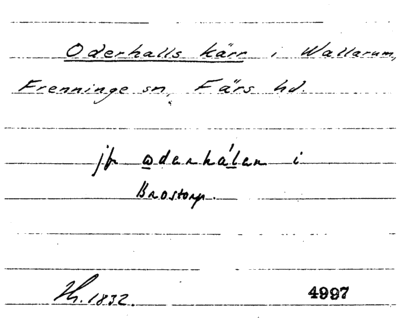 Oderhalls kärr i Wallarum,
Frenninge sn, Färs hd.
jfr oderhålen i
Brostorp.
Hr. 1832.
4997